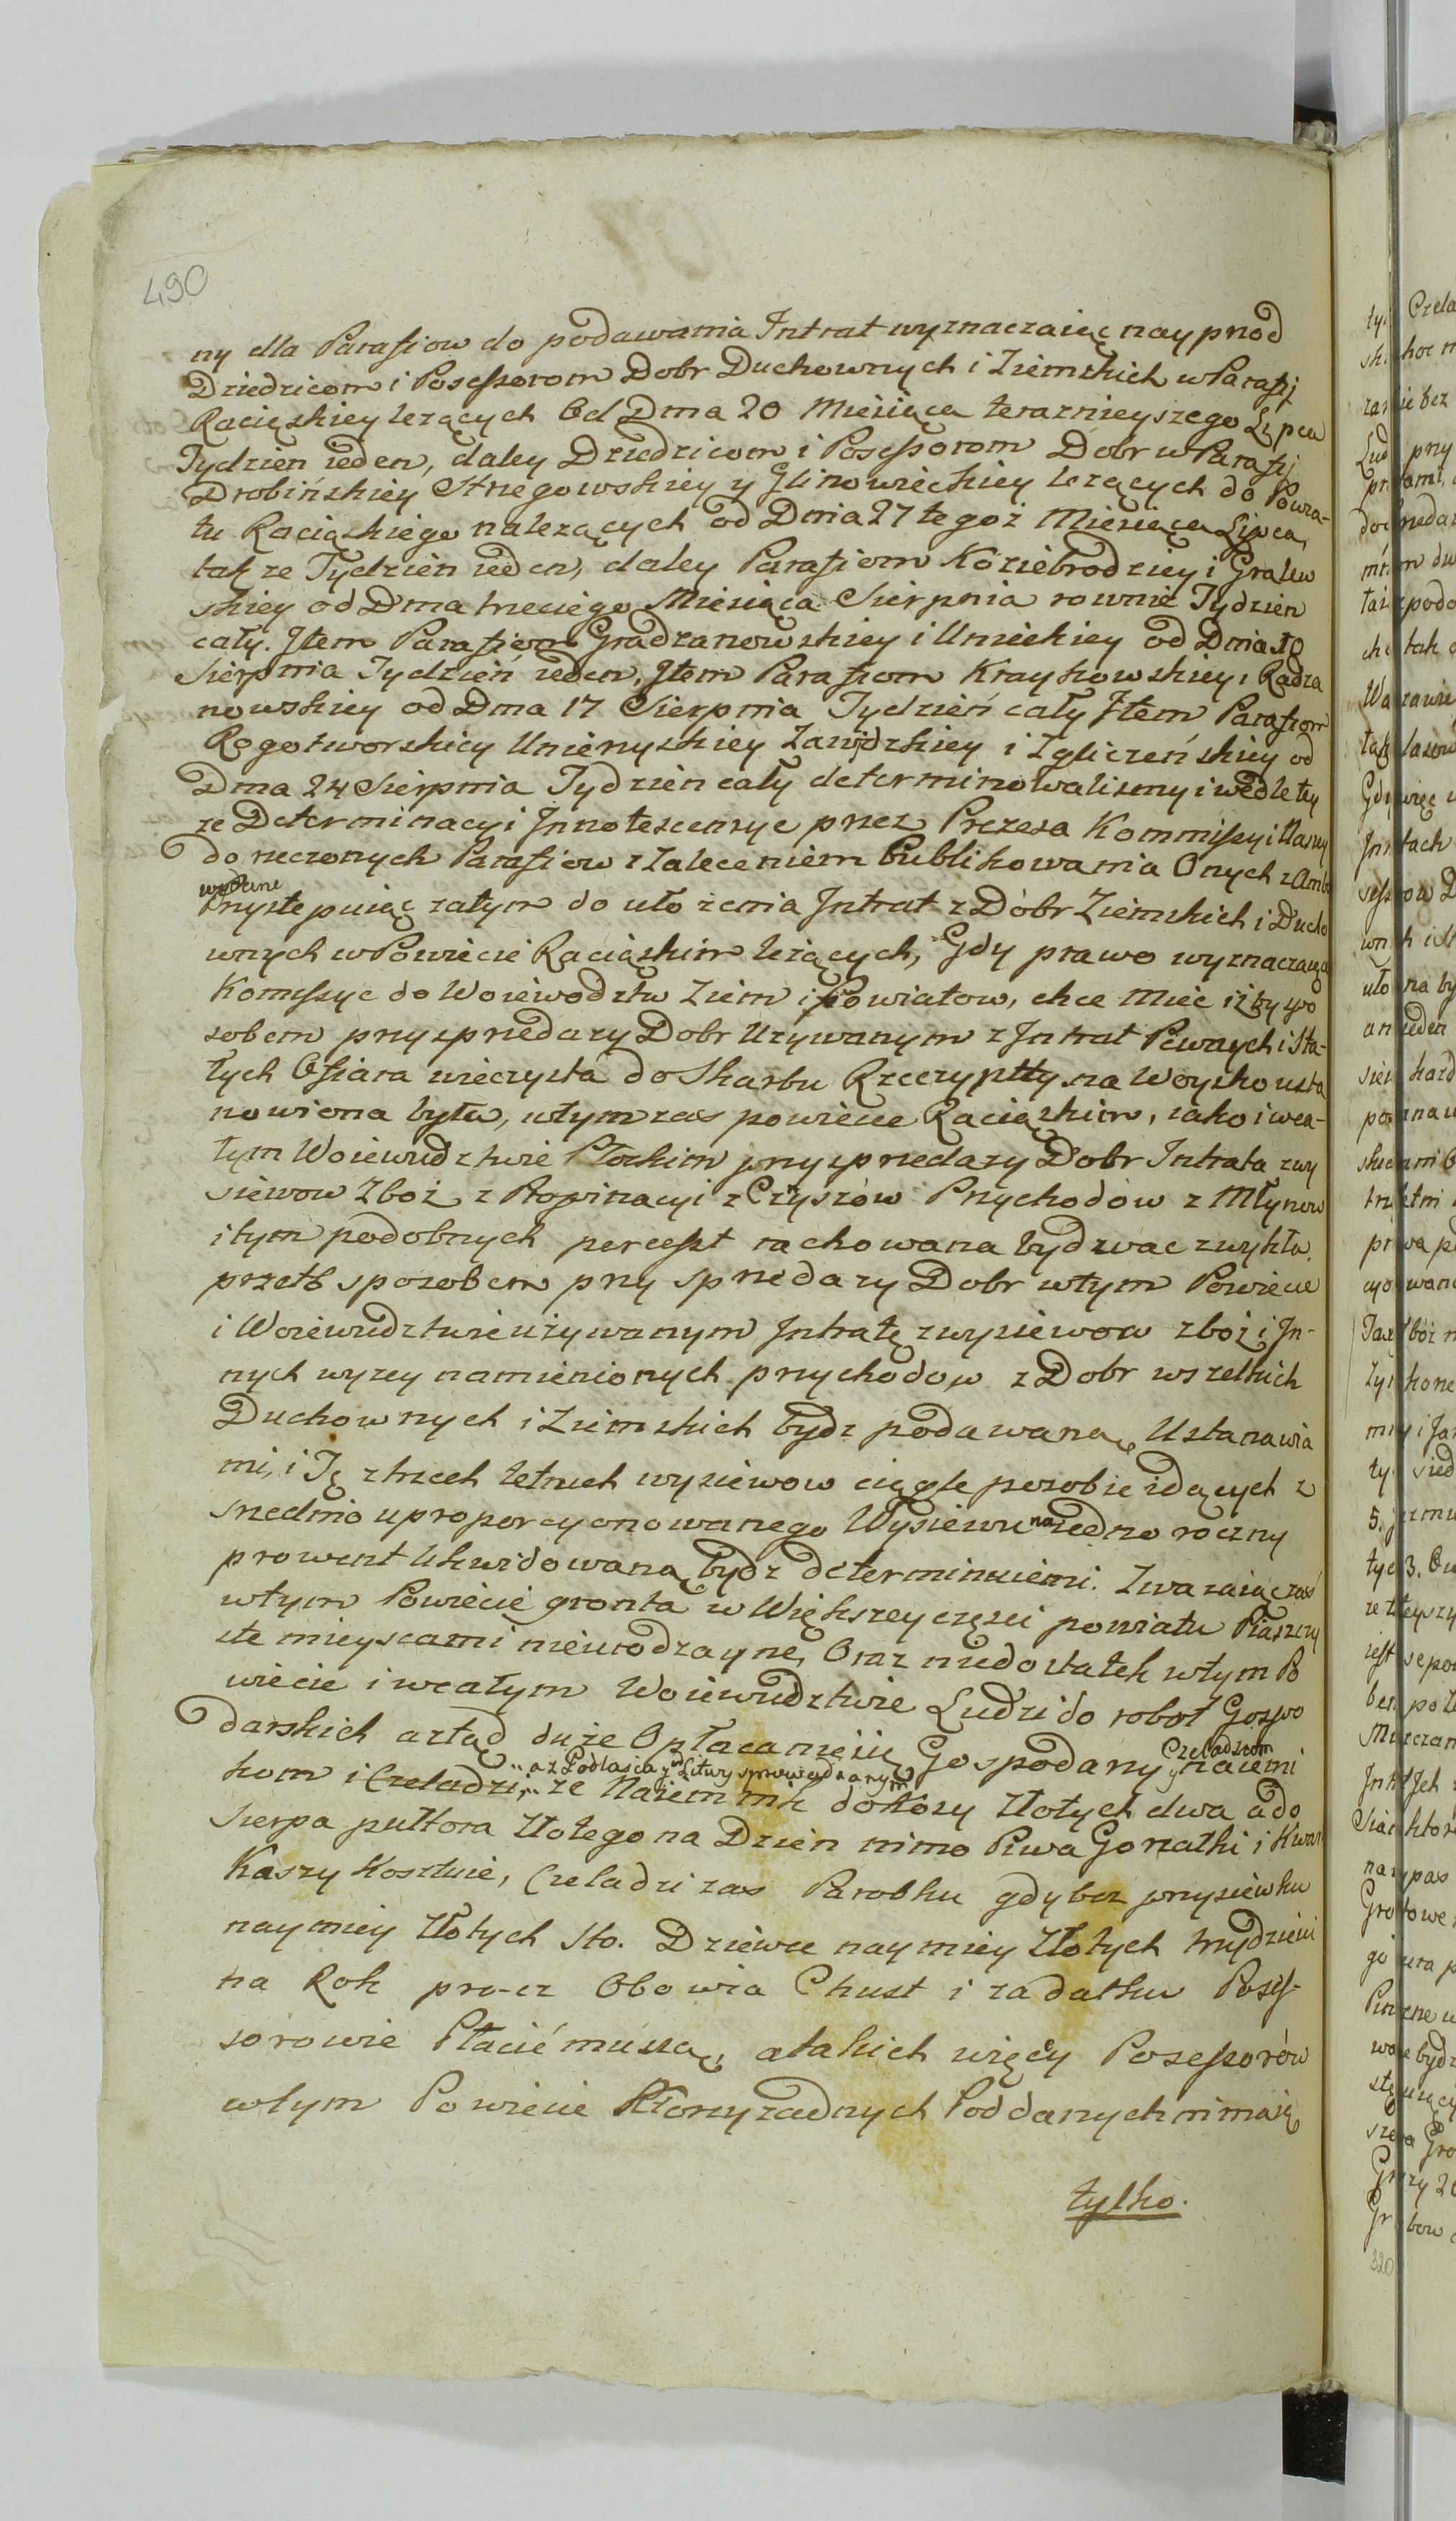 490
ny dla Parafiow do podawania Intrat wyznaczaiąc nayprzod
Dziedzicom i Possessorom Dobr Duchownych i Ziemskich w Parafij
Raciąskiey leżących Od Dnia 20 Miesiąca teraznieyszego Lipca
Tydzien ieden, daley Dziedzicom i Possessorom Dobr w Parafij
Drobińskiey Strzegowskiey y Glinowieckiey leżących do Powia-
tu Raciąskiego nalezących od Dnia 27 tegoż Miesiąca Lipca,
takze Tydzien ieden, daley Parafiom Koziebrodzkiey i Gralew
skiey od Dnia trzeciego Miesiąca Sierpnia rownie Tydzien
cały. Item Parafiom Gradzanowskiey i Unieckiey od Dnia 10
Sierpnia Tydzień ieden, Item Parafiom Kraykowskiey i Radza
nowskiey od Dnia 17 Sierpnia Tydzień cały Item Parafiom
Rogotworskiey Unierzyskiey Zawidzkiey i Zgliczeńskiey od
Dnia 24 Sierpnia Tydzien cały determinowalismy i wedle tey
ze Determinacyi Innotescencye przez Prezesa Kommissyi Naszey
do rzeczonych Parafiow z Zaleceniem Publikowania Onych z Ambo
wydane
Przystępuiąc zatym do ułożenia Intrat z Dóbr Ziemskich i Ducho
wnych w Powiecie Raciąskim leżących, Gdy prawo wyznaczaiące
Komissye do Woiewodztw Ziem i Powiatow, chce mieć iżby spo
sobem przy sprzedazy Dobr Uzywanym z Intrat Pewnych i Sta-
łych Ofiara wieczysta do Skarbu Rzeczyptty na Woysko usta
nowiona była, w tym zas powiecie Raciąskim, iako i w ca-
łym Woiewudztwie Płockim przy sprzedazy Dobr Intrata z wy
siewow Zboż z Propinacyi z Czynszów Przychodów z Młynow
i tym podobnych percept rachowana bydz wac zwykła.
przeto sposobem przy sprzedazy Dobr w tym Powiecie
i Woiewudztwie używanym Intratę z wysiewow zboż i In-
nych wyzey namienionych przychodow z Dobr wszelkich
Duchownych i Ziemskich bydz podawaną Ustanawia
mi, i Tę z trzech letnich wysiewow ciągle po sobie idących z
srzednio uproporcyonowanego Wysiewu na iedno roczny
prowent likwidowaną bydz determinuiemi. Zwazaiąc zas
w tym Powiecie gronta w Większey części powiatu Piaszczy
ste mieyscami nieurodzayne, Oraz niedostatek w tym Po
wiecie i w całym Woiewudztwie Ludzi do robot Gospo
darskich a ztąd duże Opłacanie iię Gospodarzy y Czeladziom naiemi
a z Podlasia y z Litwy sprowadzanym
kom i Czeladzi, ze Naiemnik do kosy Złotych dwa a do
Sierpa pułtora Złotego na Dzien mimo Piwa Gorzałki i Kwar
Kaszy Kosztuie, Czeladzi zas Parobku gdy bez przysiewku
naymniey Złotych sto. Dziewce naymniey Złotych trzydzieści
na Rok procz Obowia Chust i zadatku Posses-
sorowie Płacić muszą, a takich więcy Possessorów
w tym Powiecie Którzy zadnych Poddanych ni maią
tylko.